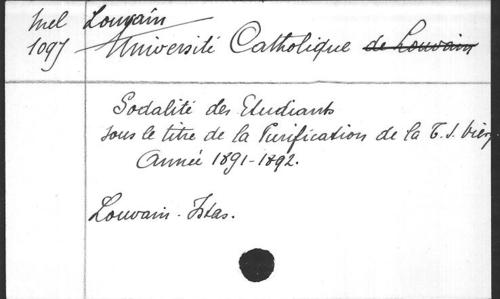 Mel Louvain
1097 Université Catholique de Louvain
Sodalité des Etudiants
sous le titre de la Purification de la T. S. Vierg
Année 1891-1892.
Louvain - Istas.